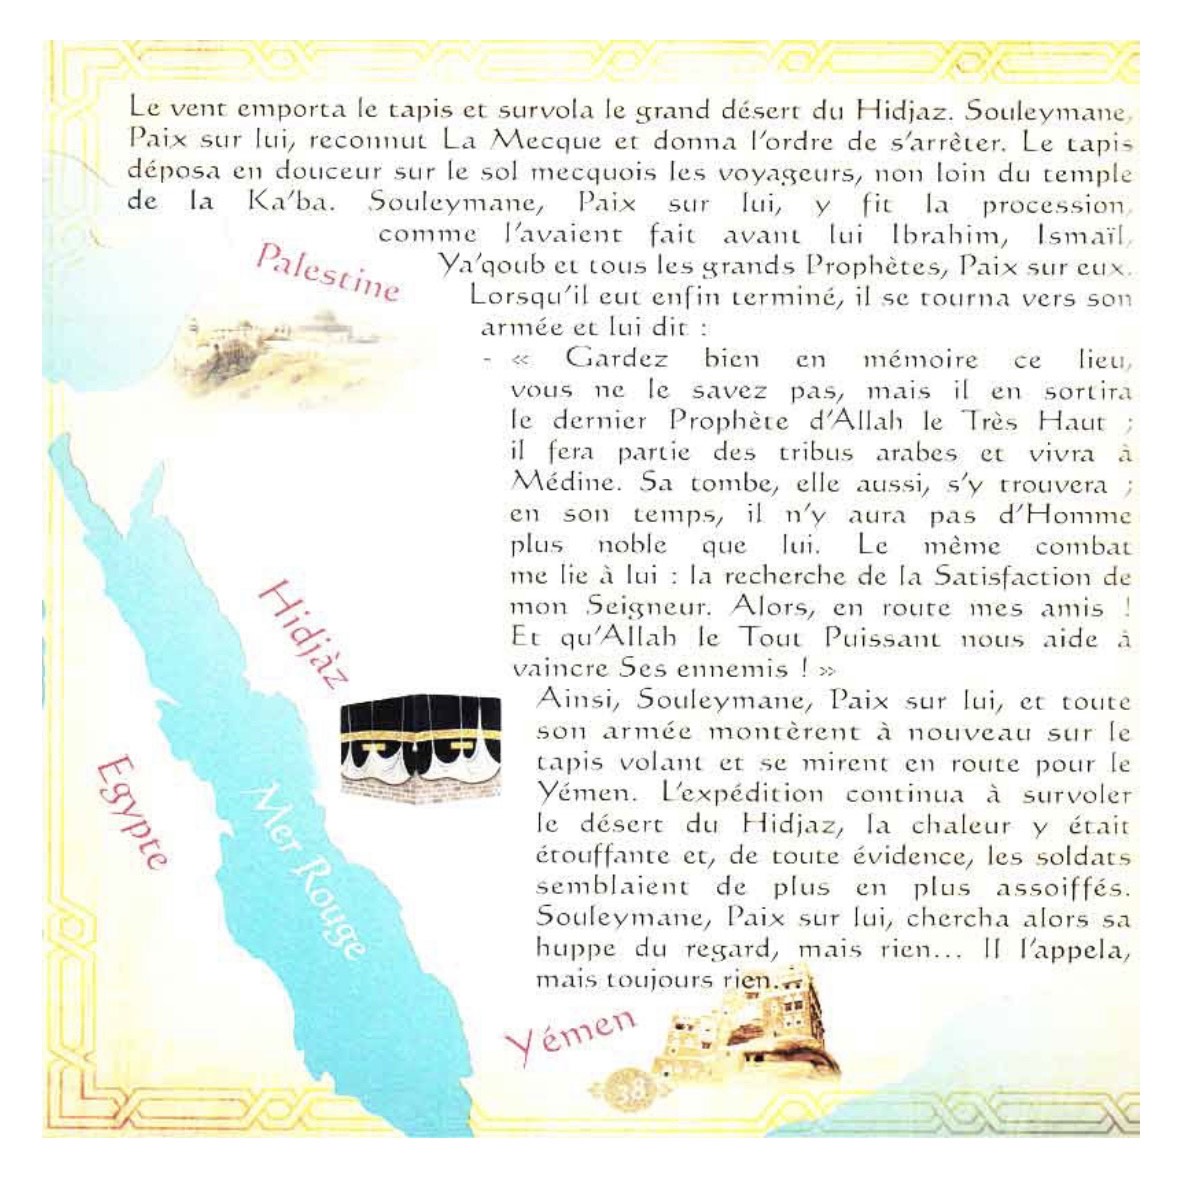 Le vent emporta le tapis et survola le grand désert du Hidjaz. Souleymane,
Paix sur lui, reconnut La Mecque et donna l'ordre de s'arrêter. Le tapis
déposa en douceur sur le sol mecquois les voyageurs, non loin du temple
de la Ka'ba. Souleymane, Paix sur lui, y fit la procession,
comme l'avaient fait avant lui Ibrahim, Ismaïl,
Ya'qoub et tous les grands Prophètes, Paix sur eux.
Lorsqu'il eut enfin terminé, il se tourna vers son
armée et lui dit :
- « Gardez bien en mémoire ce lieu,
vous ne le savez pas, mais il en sortira
le dernier Prophète d'Allah le Très Haut ;
il fera partie des tribus arabes et vivra à
Médine. Sa tombe, elle aussi, s'y trouvera ;
en son temps, il n'y aura pas d'Homme
plus noble que lui. Le même combat
me lie à lui : la recherche de la Satisfaction de
mon Seigneur. Alors, en route mes amis !
Et qu'Allah le Tout Puissant nous aide à
vaincre Ses ennemis ! »
Ainsi, Souleymane, Paix sur lui, et toute
son armée montèrent à nouveau sur le
tapis volant et se mirent en route pour le
Yémen. L'expédition continua à survoler
le désert du Hidjaz, la chaleur y était
étouffante et, de toute évidence, les soldats
semblaient de plus en plus assoiffés.
Souleymane, Paix sur lui, chercha alors sa
huppe du regard, mais rien... Il l'appela,
mais toujours rien...
Palestine
Hidjàz
Egypte
Mer Rouge
Yémen
38